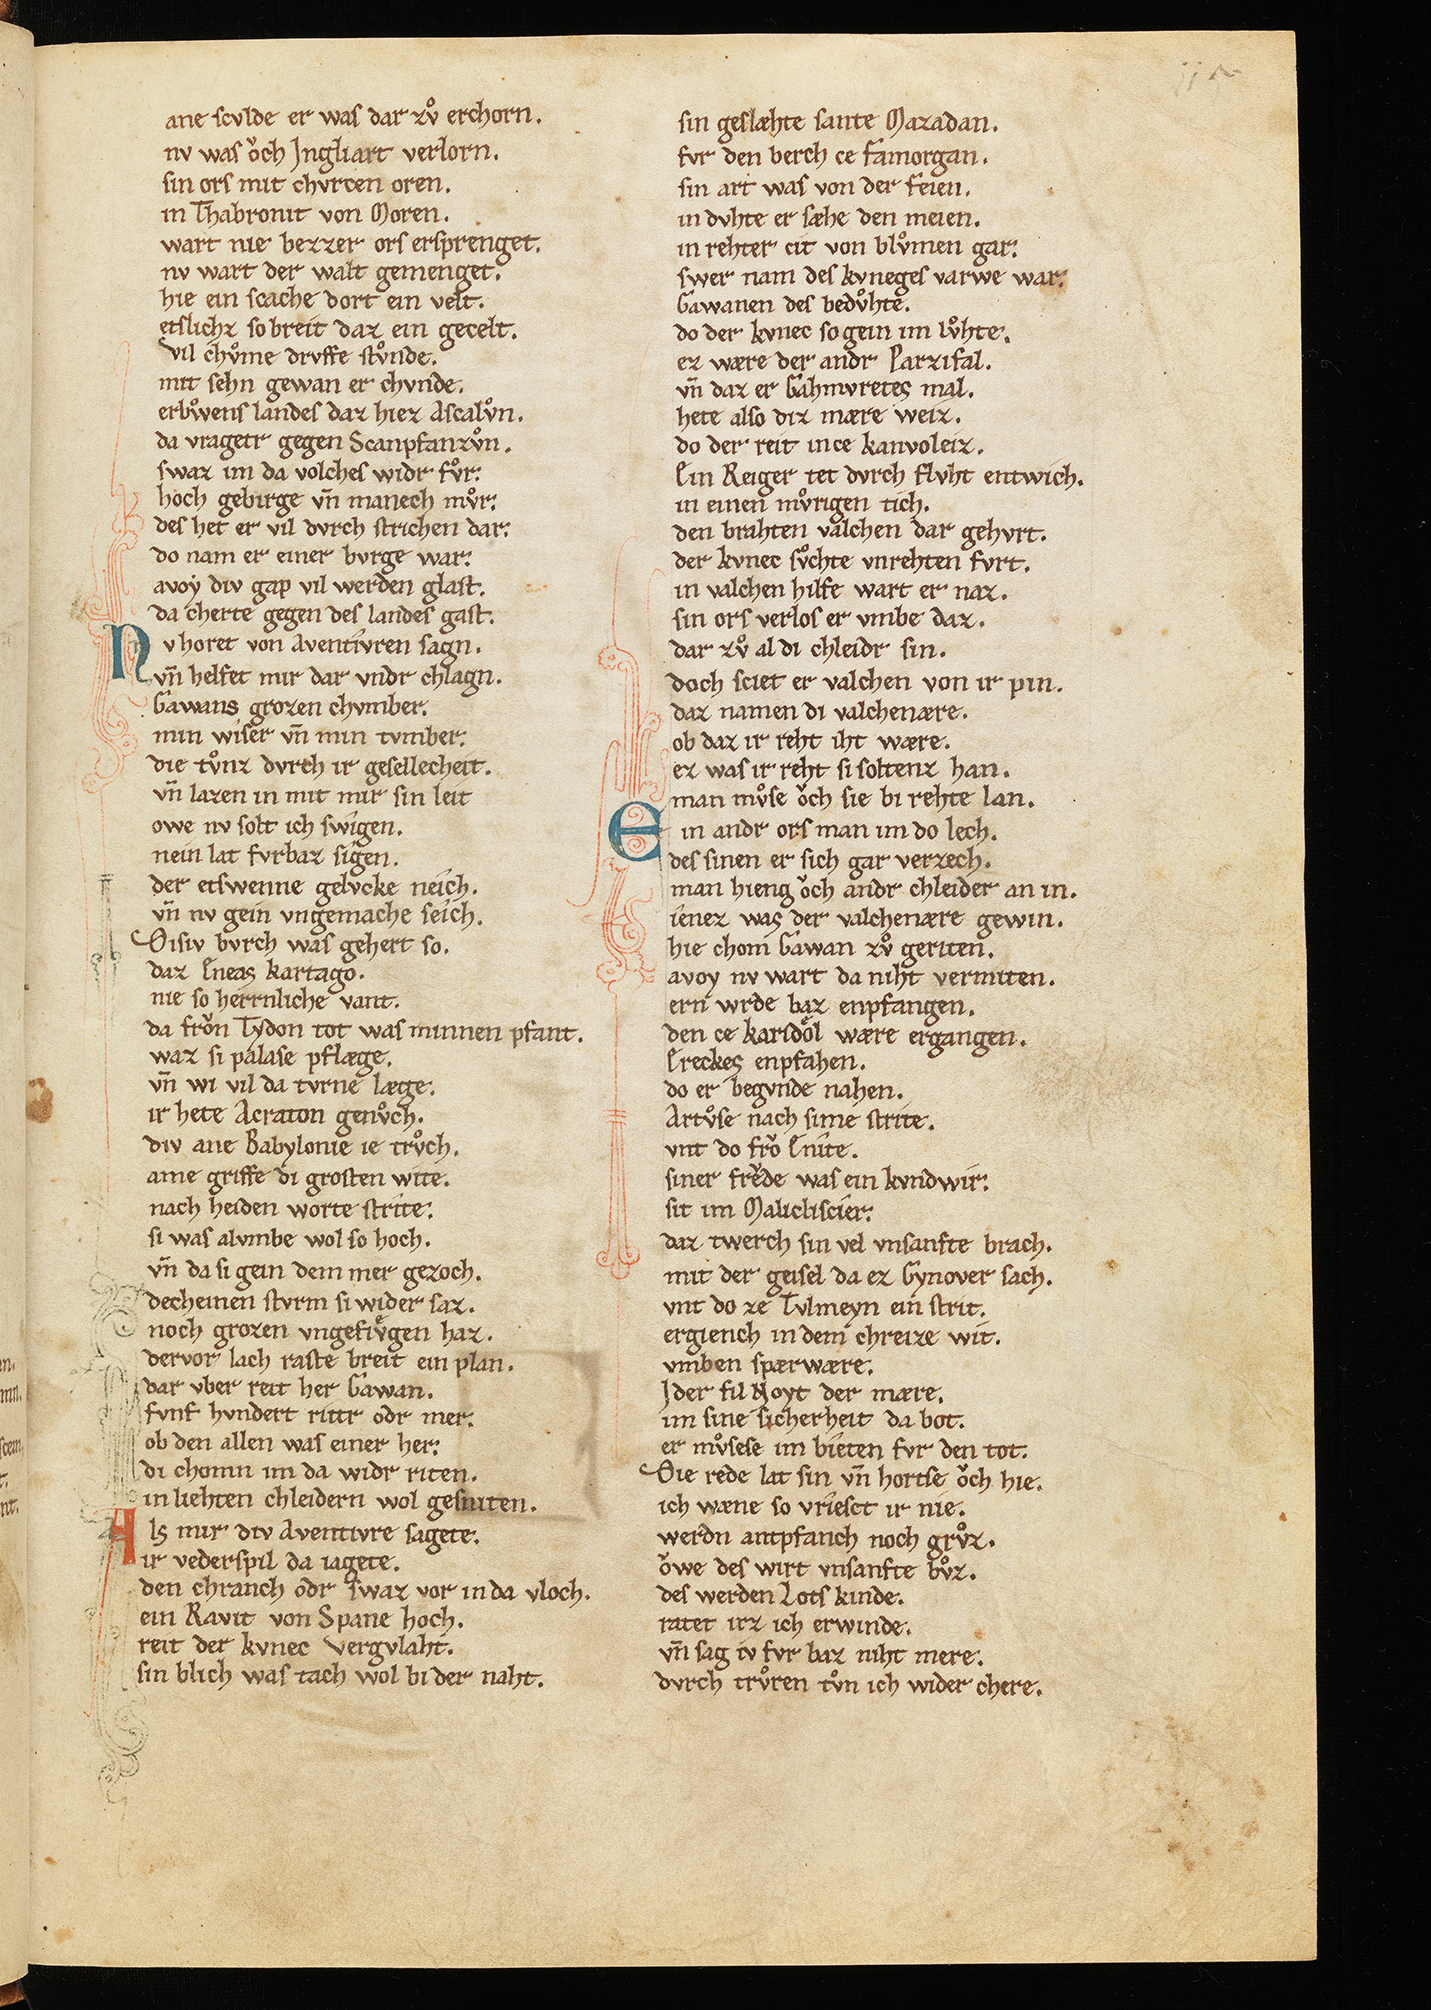 ane scvlde er was dar zvͦ erchorn.
nv was oͮch Jngliart verlorn.
sin ors mit chvrcen oren.
in Thabronit von Moren.
wart nie bezzer ors ersprenget.
nv wart der walt gemenget.
hie ein scache dort ein velt.
etslichz so breit daz ein gecelt.
vil chvͦme drvffe stvͦnde.
mit sehn gewan er chvnde.
erbvͦwens landes daz hiez Ascalvͦn.
da vragetr gegen Scanpfanzvͦn.
swaz im da volches widr fvͦr.
hoch gebirge vn̄ manech mvͦr.
des het er vil dvrch strichen dar.
do nam er einer bvrge war.
avoy div gap vil werden glast.
da cherte gegen des landes gast.
Nv horet von Aventivren sagn.
vn̄ helfet mir dar vndr chlagn.
Gawans grozen chvmber.
min wiser vn̄ min tvmber.
die tvͦnz dvrch ir gesellecheit.
vn̄ lazen in mit mir sin leit
owe nv solt ich swigen.
nein lat fvrbaz sigen.
der etswenne gelvcke neich.
vn̄ nv gein vngemache seich.
Disiv bvrch was gehert so.
daz Eneas kartago.
nie so herrnliche vant.
da froͮn Tydon tot was minnen pfant.
waz si palase pflæge.
vn̄ wi vil da tvrne læge.
ir hete Acraton genvͦch.
div ane Babylonie ie trvͦch.
ame griffe di grosten wite.
nach heiden worte strite.
si was alvmbe wol so hoch.
vn̄ da si gein dem mer gezoch.
decheinen stvrm si wider saz.
noch grozen vngefivͤgen haz.
dervor lach raste breit ein plan.
dar vber reit her Gawan.
fvnf hvndert rittr odr mer.
ob den allen was einer her.
di chomn im da widr riten.
in liehten chleidern wol gesniten.
Als mir div Aventivre sagete.
ir vederspil da iagete.
den chranch odr swaz vor in da vloch.
ein Ravit von Spane hoch.
reit der kvnec Vergvlaht.
sin blich was tach wol bi der naht.
sin geslæhte sante Mazadan.
fvr den berch ce famorgan.
sin art was von der feien.
in dvhte er sæhe den meien.
in rehter cit von blvͦmen gar.
swer nam des kvneges varwe war.
Gawanen des bedvͦhte.
do der kvnec so gein im lvͦhte.
ez wære der andr Parzifal.
vn̄ daz er Gahmvretes mal.
hete also diz mære weiz.
do der reit in ce kanvoleiz.
Ein Reiger tet dvrch flvht entwich.
in einen mvͦrigen tich.
den brahten valchen dar gehvrt.
der kvnec svͦchte vnrehten fvrt.
in valchen hilfe wart er naz.
sin ors verlos er vmbe daz.
dar zvͦ al di chleidr sin.
doch sciet er valchen von ir pin.
daz namen di valchenære.
ob daz ir reht iht wære.
ez was ir reht si soltenz han.
man mvͦse oͮch sie bi rehte lan.
Ein andr ors man im do lech.
des sinen er sich gar verzech.
man hieng oͮch andr chleider an in.
ienez was der valchenære gewin.
hie chom Gawan zvͦ geriten.
avoy nv wart da niht vermiten.
ern wrde baz enpfangen.
den ce karidoͤl wære ergangen.
Ereckes enpfahen.
do er begvnde nahen.
Artvͦse nach sime strite.
vnt do froͮ Enite.
siner freͮde was ein kvndwir.
sit im Maliclisier.
daz twerch sin vel vnsanfte brach.
mit der geisel da ez Gynover sach.
vnt do ze Tvlmeyn ein strit.
ergiench in dem chreize wit.
vmben spærwære.
Jder fil Noyt der mære.
im sine sicherheit da bot.
er mvͦsese im bieten fvr den tot.
Die rede lat sin vn̄ hortse oͮch hie.
ich wæne so vriesct ir nie.
werdn antpfanch noch grvͦz.
oͮwe des wirt vnsanfte bvͦz.
des werden Lots kinde.
ratet irz ich erwinde.
vn̄ sag iv fvr baz niht mere.
dvrch trvͦren tvͦn ich wider chere.